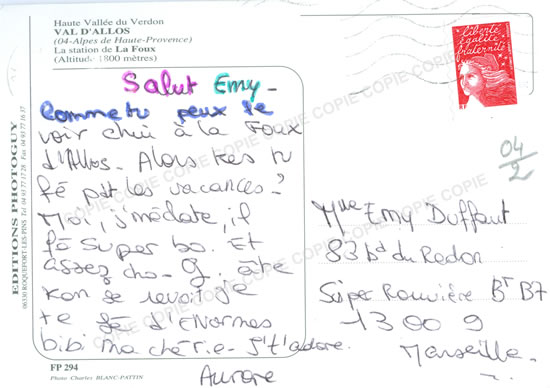 Haute Vallée du Verdon
VAL D'ALLOS
(04-Alpes de Haute-Provence)
La station de La Foux
(Altitude 1800 mètres)
Salut Emy -
Comme tu peux le
voir chui à la Foux
d'Allos. Alors tes tu
fé pit les vacances?
Moi, j'm'éclate, il
fé super bo. Et
assez cho - G. âte
kon se revoit je
te fé d'Enormes
bibi ma chérie - J't'adore.
Aurore
EDITIONS PHOTOGUY
06330 ROQUEFORT-LES-PINS Tél. 04 93 77 12 28 Fax 04 93 77 16 37
FP 294
Photo Charles BLANC-PATTIN
liberté
égalité
fraternité
RF
04
2
Mlle Emy Duffaut
83 bd du Redon
Super Rouvière Bt B7
13009
Marseille
COPIE COPIE COPIE COPIE COPIE COPIE